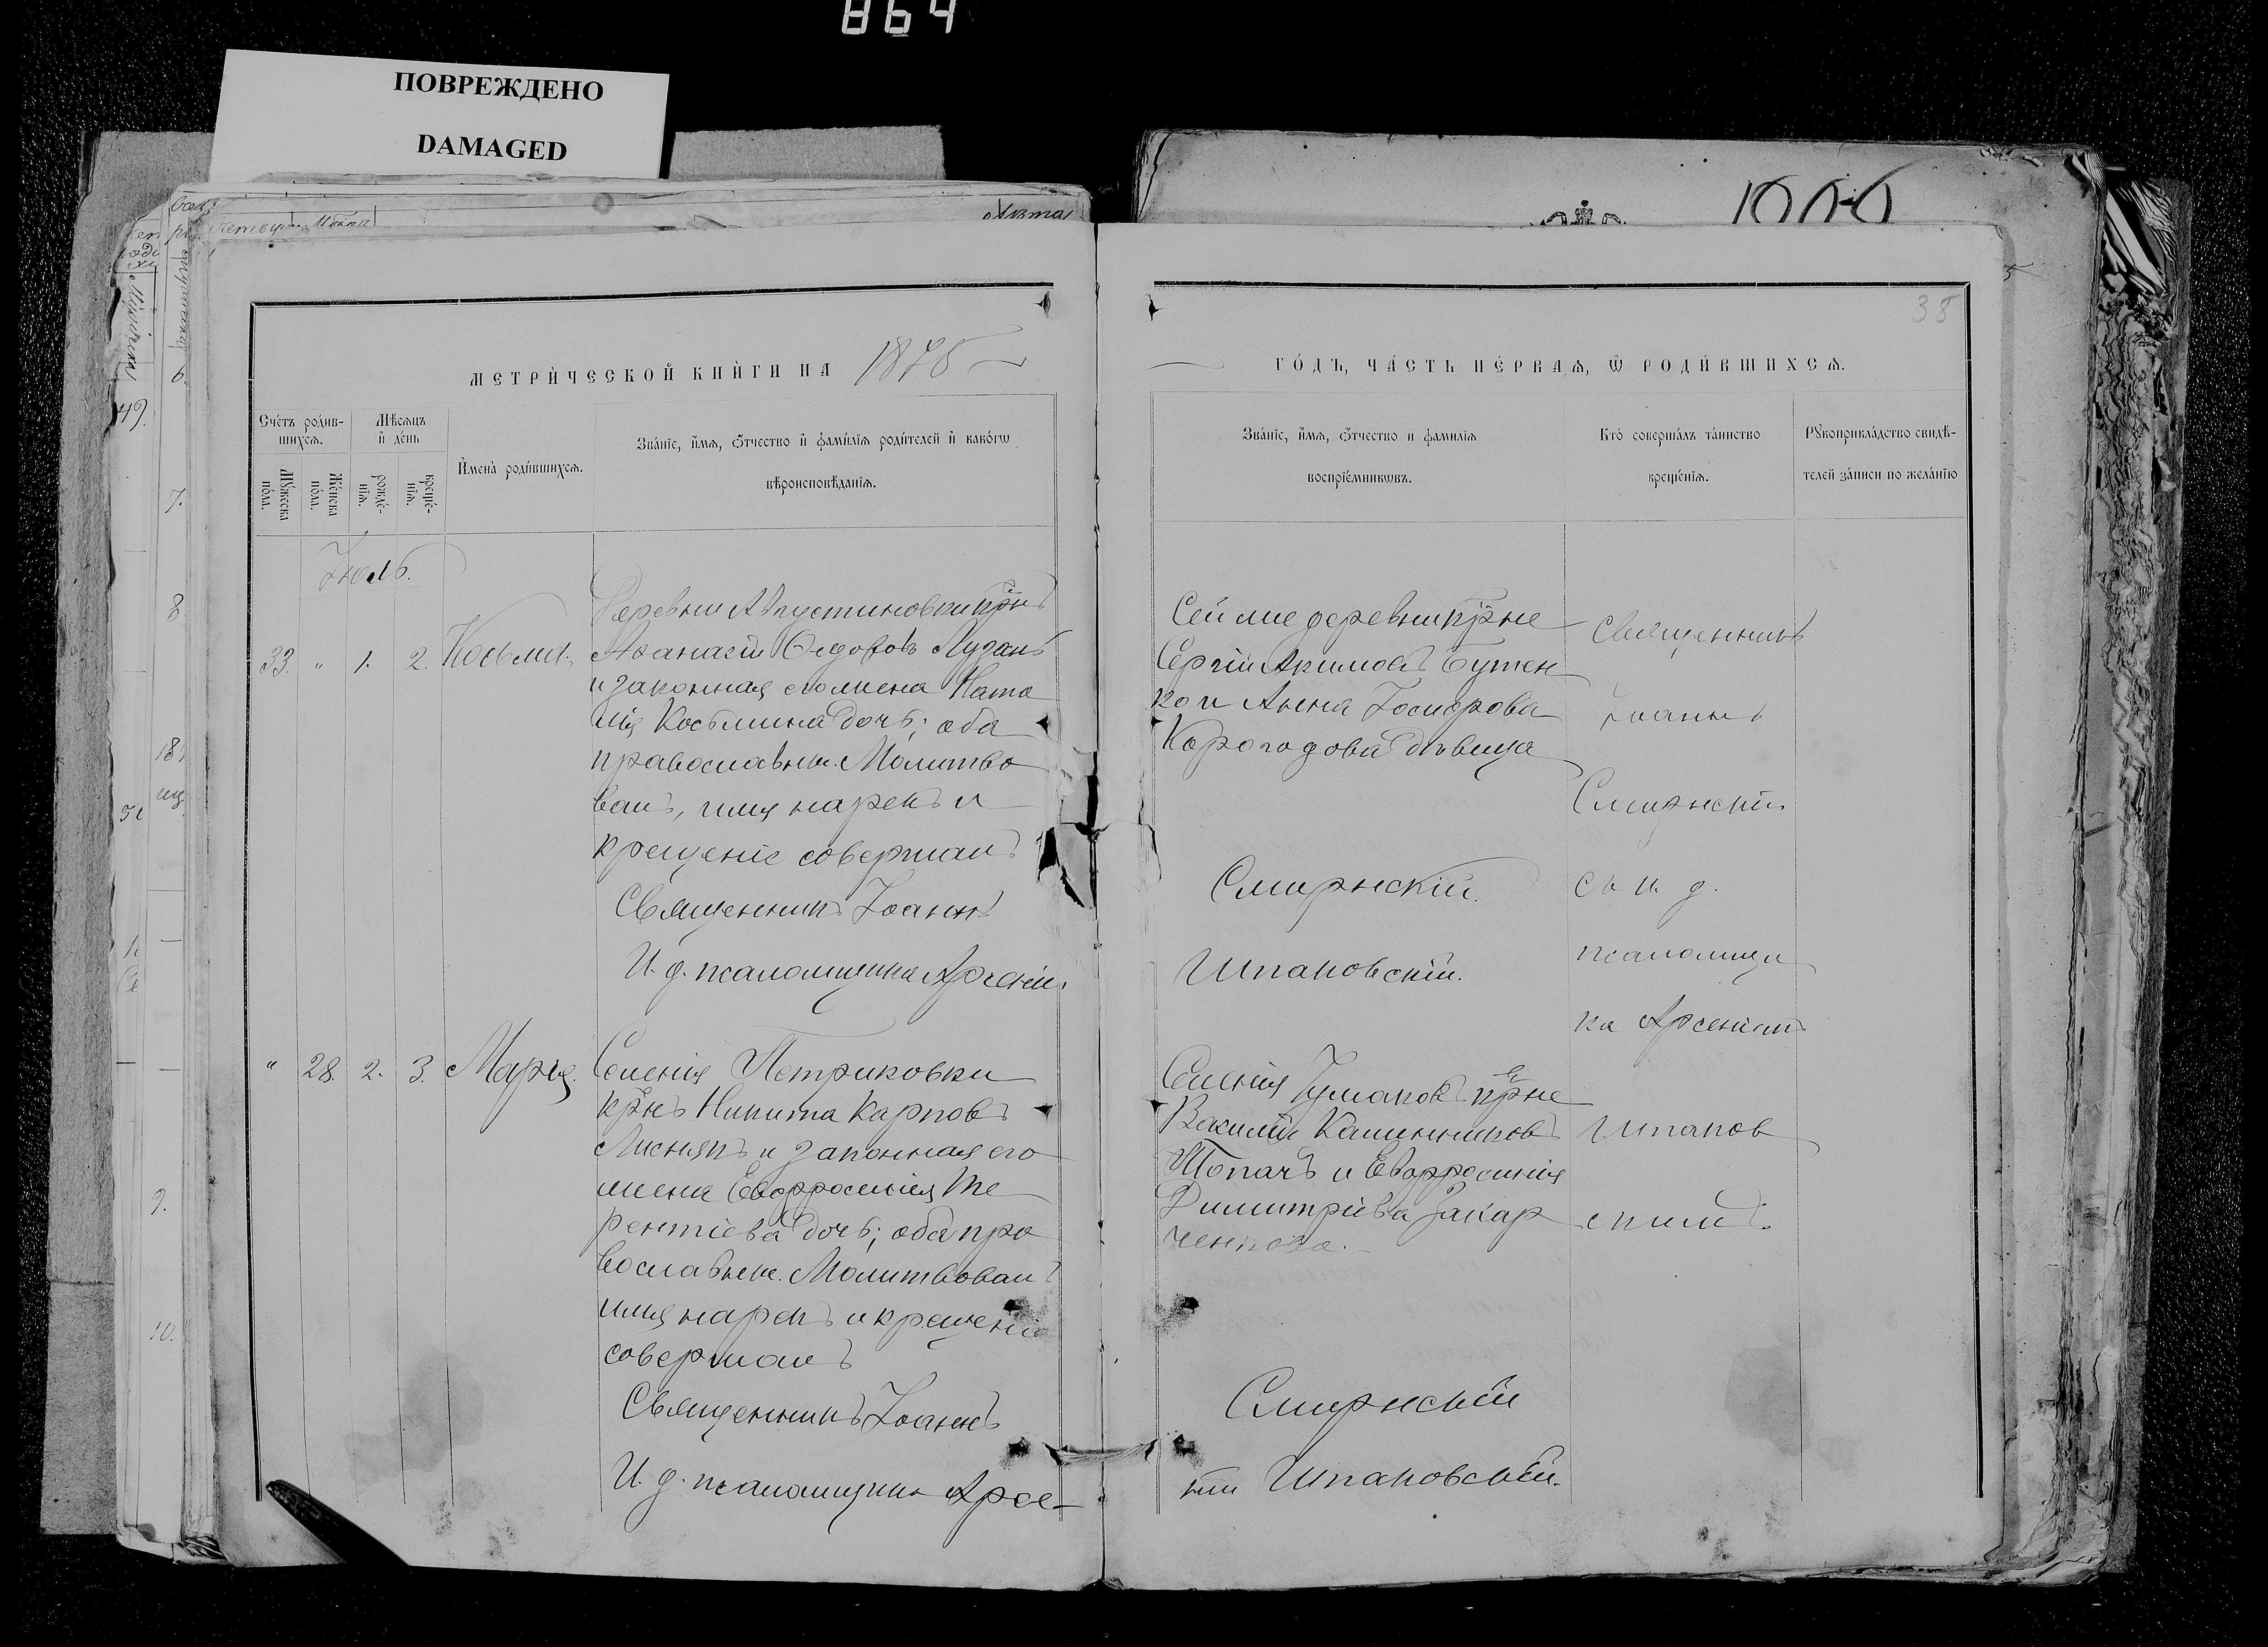 864
ПОВРЕЖДЕНО
DAMAGED
Акта
38
МЕТРИЧЕСКОЙ КНИГИ НА 1875
ГОДЪ, ЧАСТЬ ПЕРВАЯ, Ѡ РОДИВШИХСЯ.
Счетъ родив-
шихся.
Мѣсяцъ
и день
Мужеска
пола.
Женска
пола.
рожде-
нія.
креще-
нія.
Имена родившихся.
Званіе, имя, отчество и фамилія родителей и какогѡ
вѣроисповѣданія.
Званіе, имя, отчество и фамилія
воспріемникѡвъ.
Кто совершалъ таинство
крещенія.
Рукоприкладство свидѣ-
телей записи по желанію
Іюль.
33. " 1. 2. Косьма.
Деревни Августиновки крнъ
Афанасій Ѳедоровъ Лузанъ
и законная его жена Ната
лія Косьмина дочь; оба
православные. Молитво
валъ, имя нарекъ и
крещеніе совершалъ
Священникъ Іоаннъ
Смирнскій.
И. д. псаломщика Арсеній
Шпаковскій.
Сей же деревни крне
Сергій Акимовъ Бутен
ко и Анна Іосифова
Корогодова дѣвица
Священникъ
Іоаннъ
Смирнскій
съ и. д.
псаломщи
ка Арсеніемъ
Шпаков
скимъ.
" 28. 2. 3. Марія.
Селенія Петриковки
крнъ Никита Карповъ
Лиснякъ и законная его
жена Евфросинія Те
рентіева дочь; оба пра
вославные. Молитвовалъ
имя нарекъ и крещеніе
совершалъ
Священникъ Іоаннъ
Смирнскій
И. д. псаломщика Арсе-
ній Шпаковскій.
Селенія Чумаковъ крне
Василій Калинниковъ
Топачъ и Евфросинія
Димитріева Захар
ченкова.